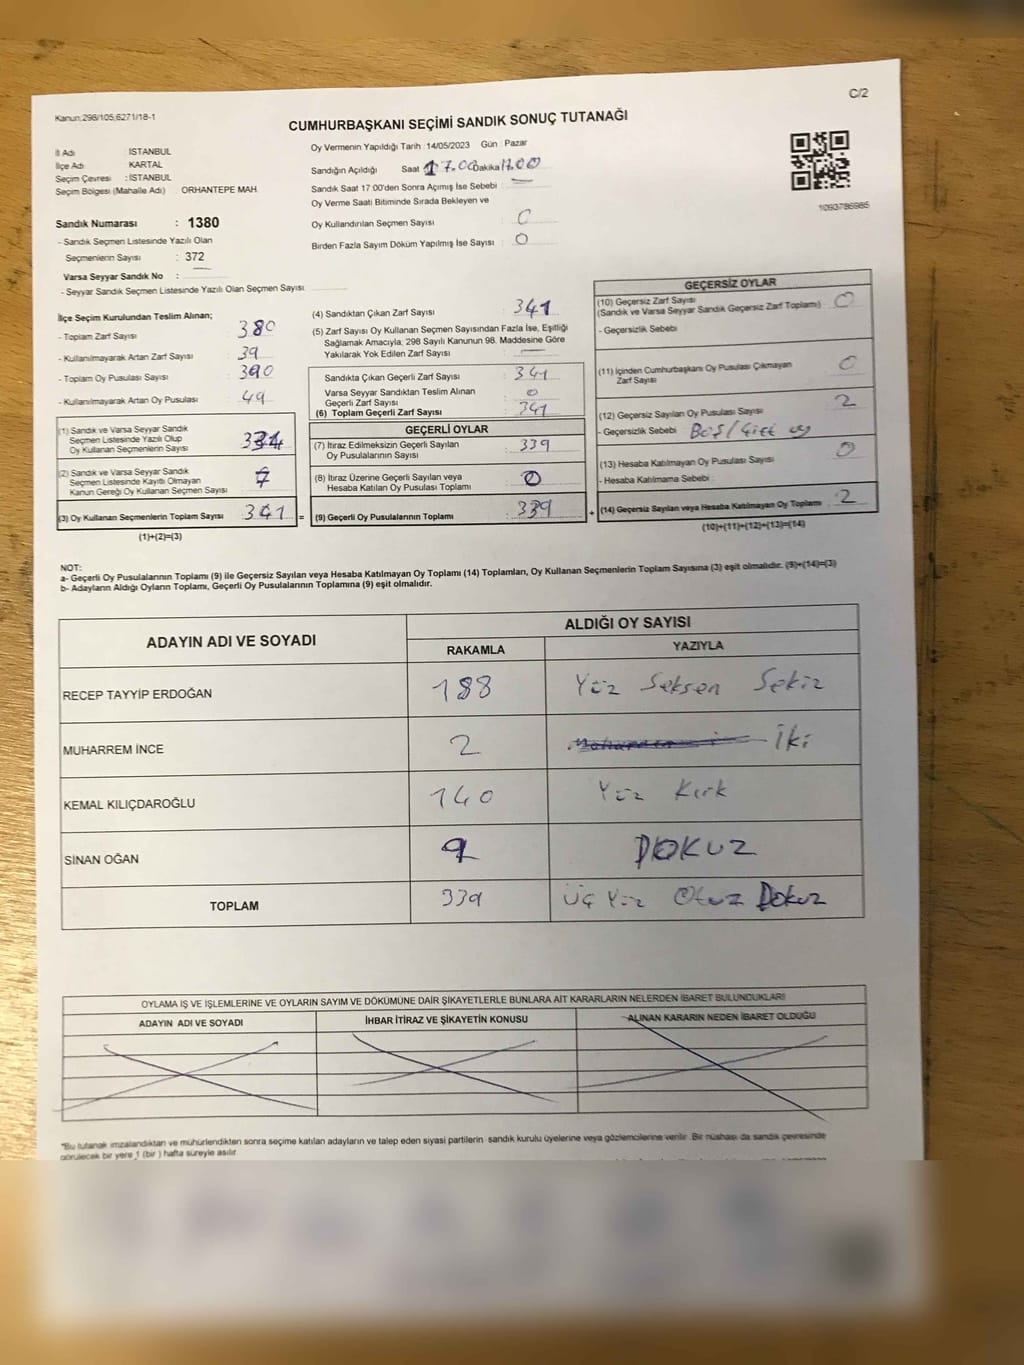 C/2
Kanun:298/105,6271/18-1
CUMHURBAŞKANI SEÇİMİ SANDIK SONUÇ TUTANAĞI
İl Adı : İSTANBUL
İlçe Adı : KARTAL
Seçim Çevresi : İSTANBUL
Seçim Bölgesi (Mahalle Adı) : ORHANTEPE MAH.
Sandık Numarası : 1380
- Sandık Seçmen Listesinde Yazılı Olan
Seçmenlerin Sayısı : 372
Varsa Seyyar Sandık No : —
- Seyyar Sandık Seçmen Listesinde Yazılı Olan Seçmen Sayısı:
Oy Vermenin Yapıldığı Tarih : 14/05/2023 Gün : Pazar
Sandığın Açıldığı Saat 17.00 Dakika 17.00
Sandık Saat 17:00'den Sonra Açımış İse Sebebi : —
Oy Verme Saati Bitiminde Sırada Bekleyen ve
Oy Kullandırılan Seçmen Sayısı : 0
Birden Fazla Sayım Döküm Yapılmış İse Sayısı : 0
1093786985
İlçe Seçim Kurulundan Teslim Alınan;
- Toplam Zarf Sayısı : 380
- Kullanılmayarak Artan Zarf Sayısı : 39
- Toplam Oy Pusulası Sayısı : 390
- Kullanılmayarak Artan Oy Pusulası : 49
(1) Sandık ve Varsa Seyyar Sandık
Seçmen Listesinde Yazılı Olup
Oy Kullanan Seçmenlerin Sayısı : 334
(2) Sandık ve Varsa Seyyar Sandık
Seçmen Listesinde Kayıtlı Olmayan
Kanun Gereği Oy Kullanan Seçmen Sayısı : 7
(3) Oy Kullanan Seçmenlerin Toplam Sayısı : 341 =
(1)+(2)=(3)
(4) Sandıktan Çıkan Zarf Sayısı : 341
(5) Zarf Sayısı Oy Kullanan Seçmen Sayısından Fazla İse, Eşitliği
Sağlamak Amacıyla; 298 Sayılı Kanunun 98. Maddesine Göre
Yakılarak Yok Edilen Zarf Sayısı : —
Sandıkta Çıkan Geçerli Zarf Sayısı : 341
Varsa Seyyar Sandıktan Teslim Alınan
Geçerli Zarf Sayısı : 0
(6) Toplam Geçerli Zarf Sayısı : 341
GEÇERLİ OYLAR
(7) İtiraz Edilmeksizin Geçerli Sayılan
Oy Pusulalarının Sayısı : 339
(8) İtiraz Üzerine Geçerli Sayılan veya
Hesaba Katılan Oy Pusulası Toplamı : 0
(9) Geçerli Oy Pusulalarının Toplamı : 339 +
GEÇERSİZ OYLAR
(10) Geçersiz Zarf Sayısı
(Sandık ve Varsa Seyyar Sandık Geçersiz Zarf Toplamı) : 0
- Geçersizlik Sebebi
(11) İçinden Cumhurbaşkanı Oy Pusulası Çıkmayan
Zarf Sayısı : 0
(12) Geçersiz Sayılan Oy Pusulası Sayısı : 2
- Geçersizlik Sebebi : Boş/Çift oy
(13) Hesaba Katılmayan Oy Pusulası Sayısı : 0
- Hesaba Katılmama Sebebi :
(14) Geçersiz Sayılan veya Hesaba Katılmayan Oy Toplamı : 2
(10)+(11)+(12)+(13)=(14)
NOT:
a- Geçerli Oy Pusulalarının Toplamı (9) ile Geçersiz Sayılan veya Hesaba Katılmayan Oy Toplamı (14) Toplamları, Oy Kullanan Seçmenlerin Toplam Sayısına (3) eşit olmalıdır. (9)+(14)=(3)
b- Adayların Aldığı Oyların Toplamı, Geçerli Oy Pusulalarının Toplamına (9) eşit olmalıdır.
ADAYIN ADI VE SOYADI ALDIĞI OY SAYISI
RAKAMLA YAZIYLA
RECEP TAYYİP ERDOĞAN 188 Yüz Seksen Sekiz
MUHARREM İNCE 2 İki
KEMAL KILIÇDAROĞLU 140 Yüz Kırk
SİNAN OĞAN 9 DOKUZ
TOPLAM 339 Üç Yüz Otuz Dokuz
OYLAMA İŞ VE İŞLEMLERİNE VE OYLARIN SAYIM VE DÖKÜMÜNE DAİR ŞİKAYETLERLE BUNLARA AİT KARARLARIN NELERDEN İBARET BULUNDUKLARI
ADAYIN ADI VE SOYADI İHBAR İTİRAZ VE ŞİKAYETİN KONUSU ALINAN KARARIN NEDEN İBARET OLDUĞU
*Bu tutanak imzalandıktan ve mühürlendikten sonra seçime katılan adayların ve talep eden siyasi partilerin sandık kurulu üyelerine veya gözlemcilerine verilir. Bir nüshası da sandık çevresinde
görülecek bir yere 1 (bir) hafta süreyle asılır.